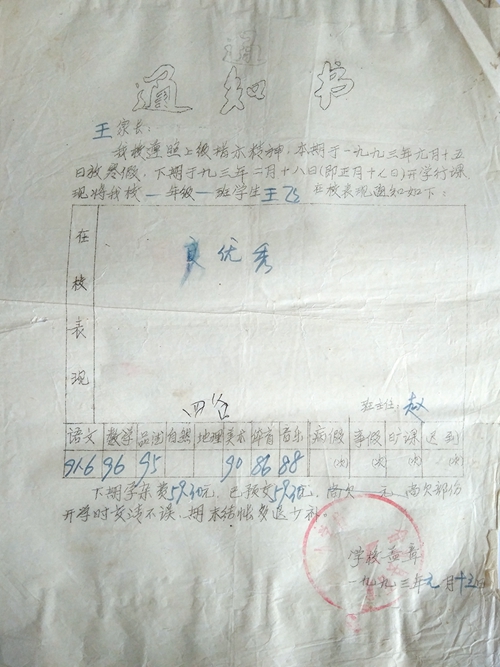 通
通知书
王家长:
我校遵照上级指示精神,本期于一九九三年元月十五
日放寒假,下期于九三年二月十八日(即正月十七日)开学行课
现将我校一年级一班学生王 在校表现通知如下:
在校表现
优秀
班主任:赵
语文 数学 品德 自然 地理 美术 体育 音乐 病假 事假 旷课 迟到
91.6 96 95 90 86 88 (次) (次) (次) (次)
下期学杂费59元,已预交59元,尚欠 元,尚欠部份
开学时交清不误,期末结帐多退少补。
学校盖章
一九九三年元月十五日